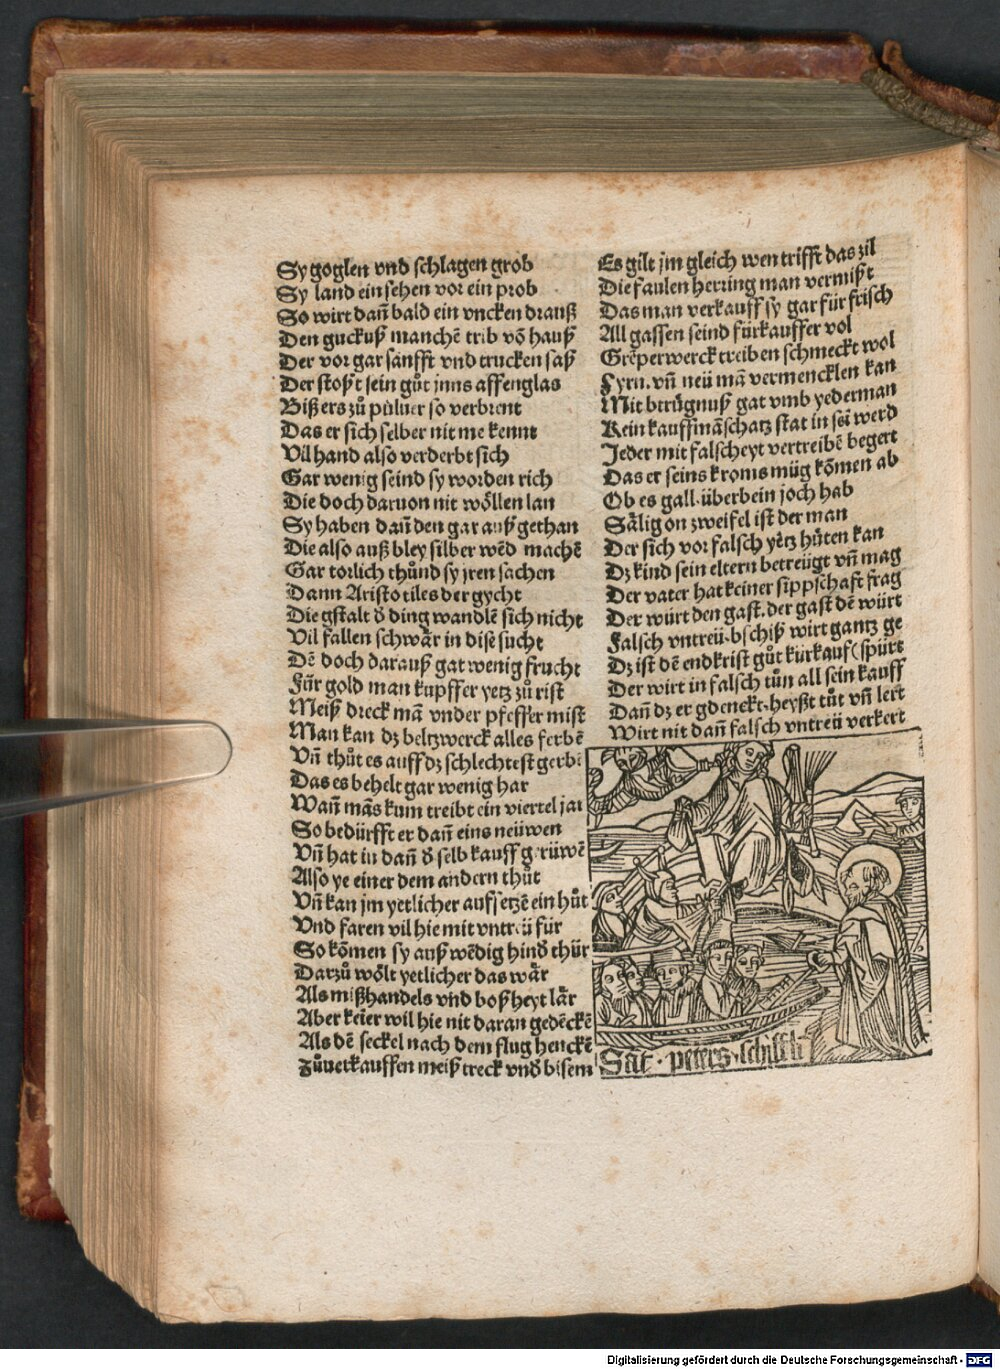 Sy goglen vnd schlagen grob
Sy land ein sehen vor ein prob
So wirt dañ bald ein vncken drauß
Den guckuß manchē trib vō hauß
Der vor gar sanfft vnd trucken saß
Der stoßt sein gůt inns affenglas
Biß ers zů puluer so verbrent
Das er sich selber nit me kennt
Vil hand also verderbt sich
Gar wenig seind sy worden rich
Die doch daruon nit wöllen lan
Sy haben dañ den gar auß gethan
Die also auß bley silber wēd machē
Gar torlich thůnd sy jren sachen
Dann Aristotiles der gycht
Die gstalt d̄ ding wandlē sich nicht
Vil fallen schwär in dise sucht
Dē doch darauß gat wenig frucht
Für gold man kupffer yetz zů rist
Meiß dreck mā vnder pfeffer mist
Man kan dz beltzwerck alles ferbē
Vñ thůt es auff dz schlechtest gerbē
Das es behelt gar wenig har
Wañ mās kum treibt ein viertel jar
So bedürfft er dañ eins neüwen
Vñ hat in dañ d̄ selb kauff gerüwē
Also ye einer dem andern thůt
Vñ kan jm yetlicher aufsetzē ein hůt
Vnd faren vil hie mit vntreü für
So kōmen sy auß wēdig hind̄ thür
Darzů wölt yetlicher das wär
Als mißhandels vnd boßheyt lär
Aber keier wil hie nit daran gedēckē
Als dē seckel nach dem flug henckē
Zůuerkauffen meiß treck vnd̄ bisem
Es gilt jm gleich wen trifft das zil
Die faulen hering man vermißt
Das man verkauff sy gar für frisch
All gassen seind fürkauffer vol
Grēperwerck treiben schmeckt wol
Fyrn. vñ neü mā vermencklen kan
Mit btrügnuß gat vmb yederman
Kein kauffmāschatz stat in sei werd
Jeder mit falscheyt vertreibē begert
Das er seins kroms müg kōmen ab
Ob es gall. überbein joch hab
Sälig on zweifel ist der man
Der sich vor falsch yetz hüten kan
Dz kind sein eltern betreügt vñ mag
Der vater hat keiner sippschaft frag
Der würt den gast. der gast dē würt
Falsch vntreü. bschiß wirt gantz ge
Dz ist dē endkrist gůt fürkauf (spürt
Der wirt in falsch tůn all sein kauff
Dañ dz er gdenckt. heyßt tůt vñ lert
Wirt nit dañ falsch vntreü verkert
Sāt · peters · schifflī
Digitalisierung gefördert durch die Deutsche Forschungsgemeinschaft - DFG